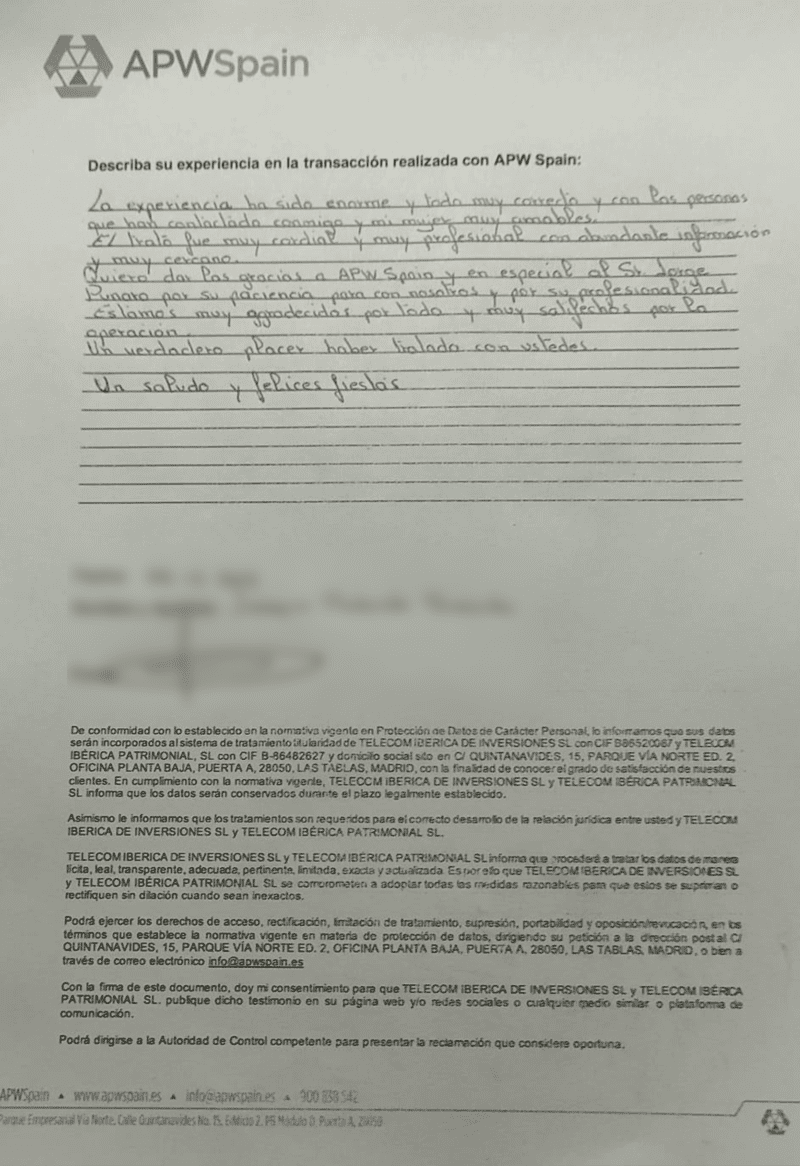 APWSpain
Describa su experiencia en la transacción realizada con APW Spain:
La experiencia ha sido enorme y todo muy correcto y con las personas
que han contactado conmigo y mi mujer muy amables.
El trato fue muy cordial y muy profesional con abundante información
y muy cercano.
Quiero dar las gracias a APW Spain y en especial al Sr. Jorge
por su paciencia para con nosotros y por su profesionalidad.
Estamos muy agradecidos por todo y muy satisfechos por la
operación.
Un verdadero placer haber tratado con ustedes.
Un saludo y felices fiestas
De conformidad con lo establecido en la normativa vigente en Protección de Datos de Carácter Personal, le informamos que sus datos
serán incorporados al sistema de tratamiento titularidad de TELECOM IBERICA DE INVERSIONES SL con CIF y TELECOM
IBÉRICA PATRIMONIAL, SL con CIF B-86482627 y domicilio social sito en C/ QUINTANAVIDES, 15, PARQUE VÍA NORTE ED. 2,
OFICINA PLANTA BAJA, PUERTA A, 28050, LAS TABLAS, MADRID, con la finalidad de conocer el grado de satisfacción de nuestros
clientes. En cumplimiento con la normativa vigente, TELECOM IBERICA DE INVERSIONES SL y TELECOM IBÉRICA PATRIMONIAL
SL informa que los datos serán conservados durante el plazo legalmente establecido.
Asimismo le informamos que los tratamientos son requeridos para el correcto desarrollo de la relación jurídica entre usted y TELECOM
IBERICA DE INVERSIONES SL y TELECOM IBÉRICA PATRIMONIAL SL.
TELECOM IBERICA DE INVERSIONES SL y TELECOM IBÉRICA PATRIMONIAL SL informa que procederá a tratar los datos de manera
lícita, leal, transparente, adecuada, pertinente, limitada, exacta y actualizada. Es por ello que TELECOM IBERICA DE INVERSIONES SL
y TELECOM IBÉRICA PATRIMONIAL SL se comprometen a adoptar todas las medidas razonables para que estos se supriman o
rectifiquen sin dilación cuando sean inexactos.
Podrá ejercer los derechos de acceso, rectificación, limitación de tratamiento, supresión, portabilidad y oposición/revocación, en los
términos que establece la normativa vigente en materia de protección de datos, dirigiendo su petición a la dirección postal C/
QUINTANAVIDES, 15, PARQUE VÍA NORTE ED. 2, OFICINA PLANTA BAJA, PUERTA A, 28050, LAS TABLAS, MADRID, o bien a
través de correo electrónico info@apwspain.es
Con la firma de este documento, doy mi consentimiento para que TELECOM IBERICA DE INVERSIONES SL y TELECOM IBÉRICA
PATRIMONIAL SL. publique dicho testimonio en su página web y/o redes sociales o cualquier medio similar o plataforma de
comunicación.
Podrá dirigirse a la Autoridad de Control competente para presentar la reclamación que considere oportuna.
APWSpain ▲ www.apwspain.es ▲ info@apwspain.es ▲ 900 838 542
Parque Empresarial Vía Norte, Calle Quintanavides No. 15, Edificio 2, PB Módulo D, Puerta A, 28050